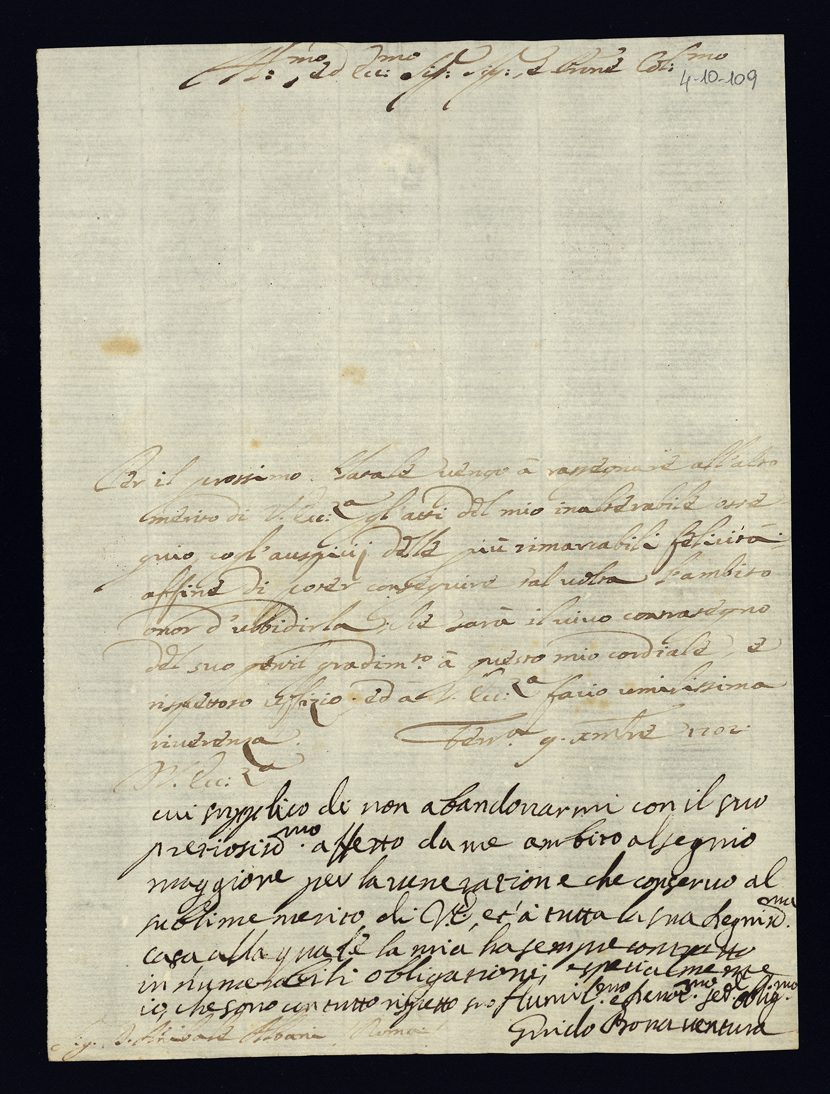 Ill:mo, ed Ecc:mo Sig:r Sig:r, e Prone Col:mo
4-10-109
Per il prossimo Natale vengo à rassegnare all'alto
merito di V. Ecc:za gl'atti del mio inalterabile osse=
quio, cogl'auspicij delle più rimarcabili felicità;
affine di poter conseguire tal volta l'ambito
onor d'ubbidirla; che sarà il vivo contrasegno
del suo gentil gradim:to à questo mio cordiale, e
rispettoso uffizio. ed a V. Ecc:za facio umilissima
riverenza. Ferr:a 9. Xmbre 1702:
V. Ecc:za
cui supplico di non abandonarmi con il suo
pretiosiss:mo affetto da me ambito al segnio
maggiore per la veneratione che conservo al
sublime merito di V.E., et à tutta la sua Degniss:ma
casa alla quale la mia ha sempre contratto
innumerabili obligationi, e specialmente
io, che sono con tutto rispetto suo Humil:mo e Devot:mo Ser: oblig:mo
Guido Bonaventura
Sig. D. Anibale Albani. Roma